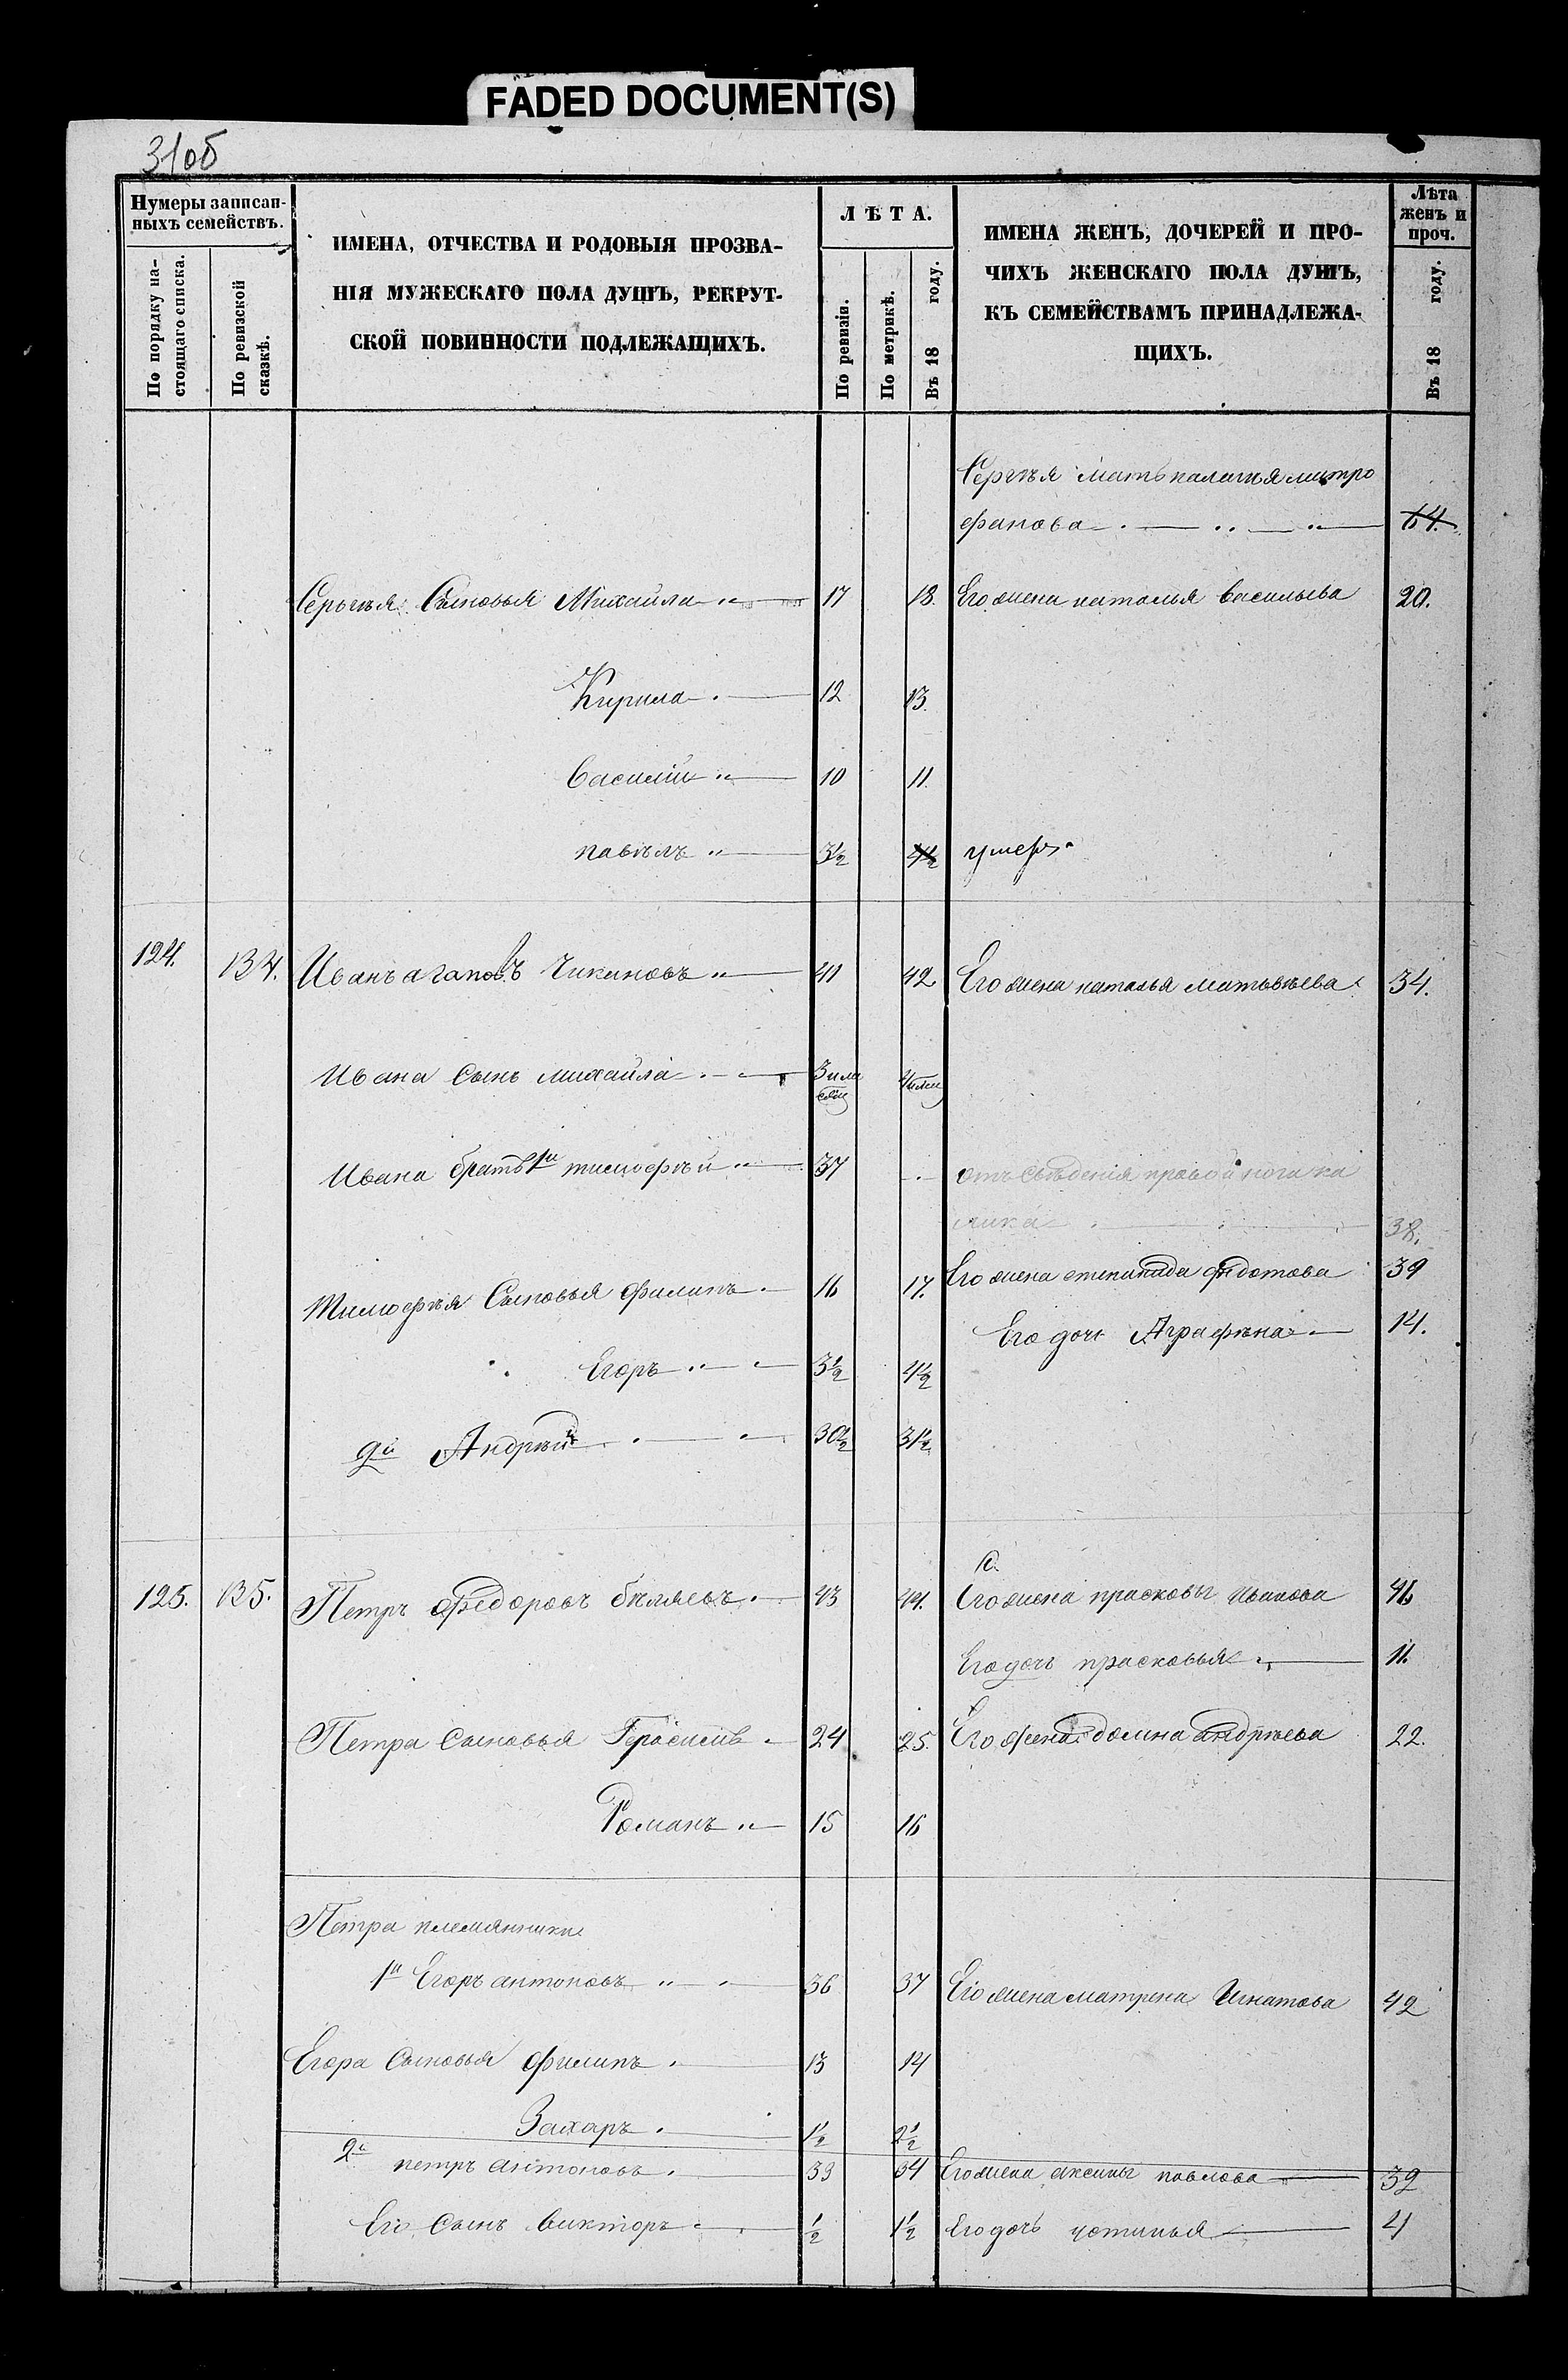 FADED DOCUMENT(S)
31об
Нумеры записан-
ныхъ семействъ.
По порядку на-
стоящаго списка.
По ревизской
сказкѣ.
ИМЕНА, ОТЧЕСТВА И РОДОВЫЯ ПРОЗВА-
НІЯ МУЖЕСКАГО ПОЛА ДУШЪ, РЕКРУТ-
СКОЙ ПОВИННОСТИ ПОДЛЕЖАЩИХЪ.
ЛѢТА.
По ревизіи.
По метрикѣ.
Въ 18 году.
ИМЕНА ЖЕНЪ, ДОЧЕРЕЙ И ПРО-
ЧИХЪ ЖЕНСКАГО ПОЛА ДУШЪ,
КЪ СЕМЕЙСТВАМЪ ПРИНАДЛЕЖА-
ЩИХЪ.
Лѣта
женъ и
проч.
Въ 18 году.
Сергѣя мать палагея митро
фанова 64.
Сергѣя Сыновья Михайла 17 18. Его жена наталья васильева 20.
Кирила 12 13.
Василий 10 11.
павѣлъ 3½ 4½ умеръ
124. 134. Иванъ агаповъ Чикиновъ 41 42 Его жена наталья матьвѣева 34.
Ивана Сынъ михайла
Ивана братья 1й тимофѣй 37 отъ сведенія правой ноги ка
лика 38.
Тимофѣя Сыновья филипъ 16 17. Его жена степанида федотова 39
Его дочь Аграфѣна 14.
Егоръ 3½ 4½
2й Андрѣй 30½ 31½
125. 135. Петръ федоровъ бѣляевъ 43 44. Его жена прасковья Иванова 46
Его дочь прасковья 11.
Петра сыновья Герасимъ 24 25. Его жена домна андрѣева 22.
Романъ 15 16
Петра племянники
1й Егоръ антоновъ 36 37 Его жена матрена Игнатова 42
Егора Сыновья филипъ 13 14
Захаръ 1½ 2½
2й петръ антоновъ 33 34 Его жена аксинья павлова 32
Его Сынъ викторъ ½ 1½ Его дочь устинья 4